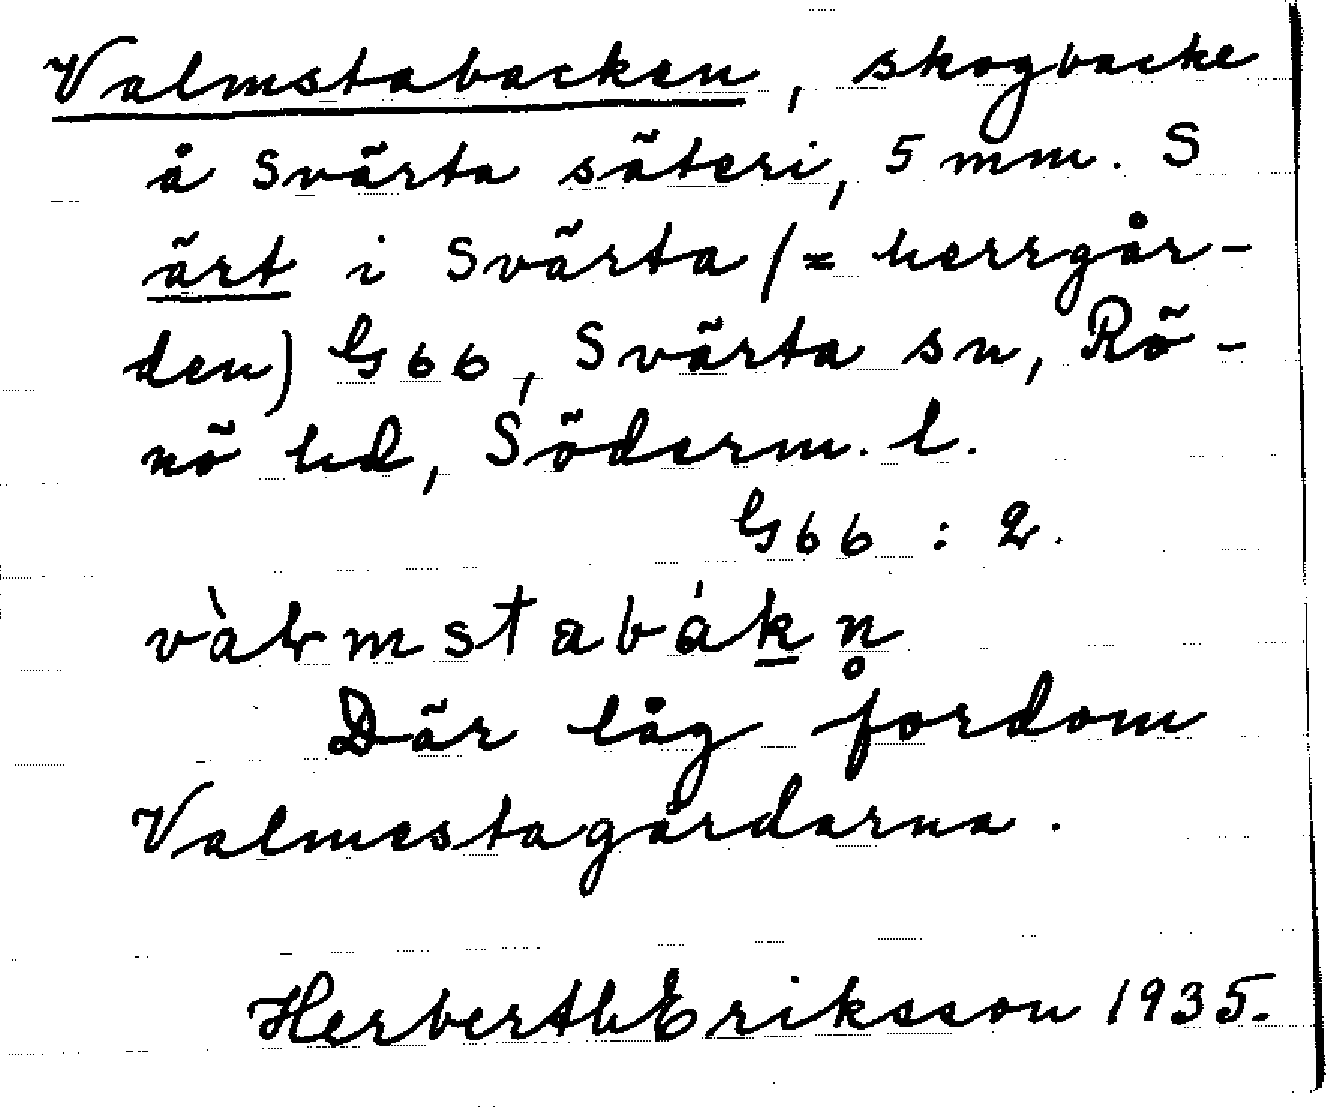 Valmstabacken, skogbacke
å Svärta säteri, 5 mm. S
ärt i Svärta (= herrgår-
den) G 66, Svärta sn, Rö-
nö hd, Söderm. l.
G 66 : 2.
vàlmstabákn̥
Där låg fordom
Valmestagårdarna.
Herberth Eriksson 1935.